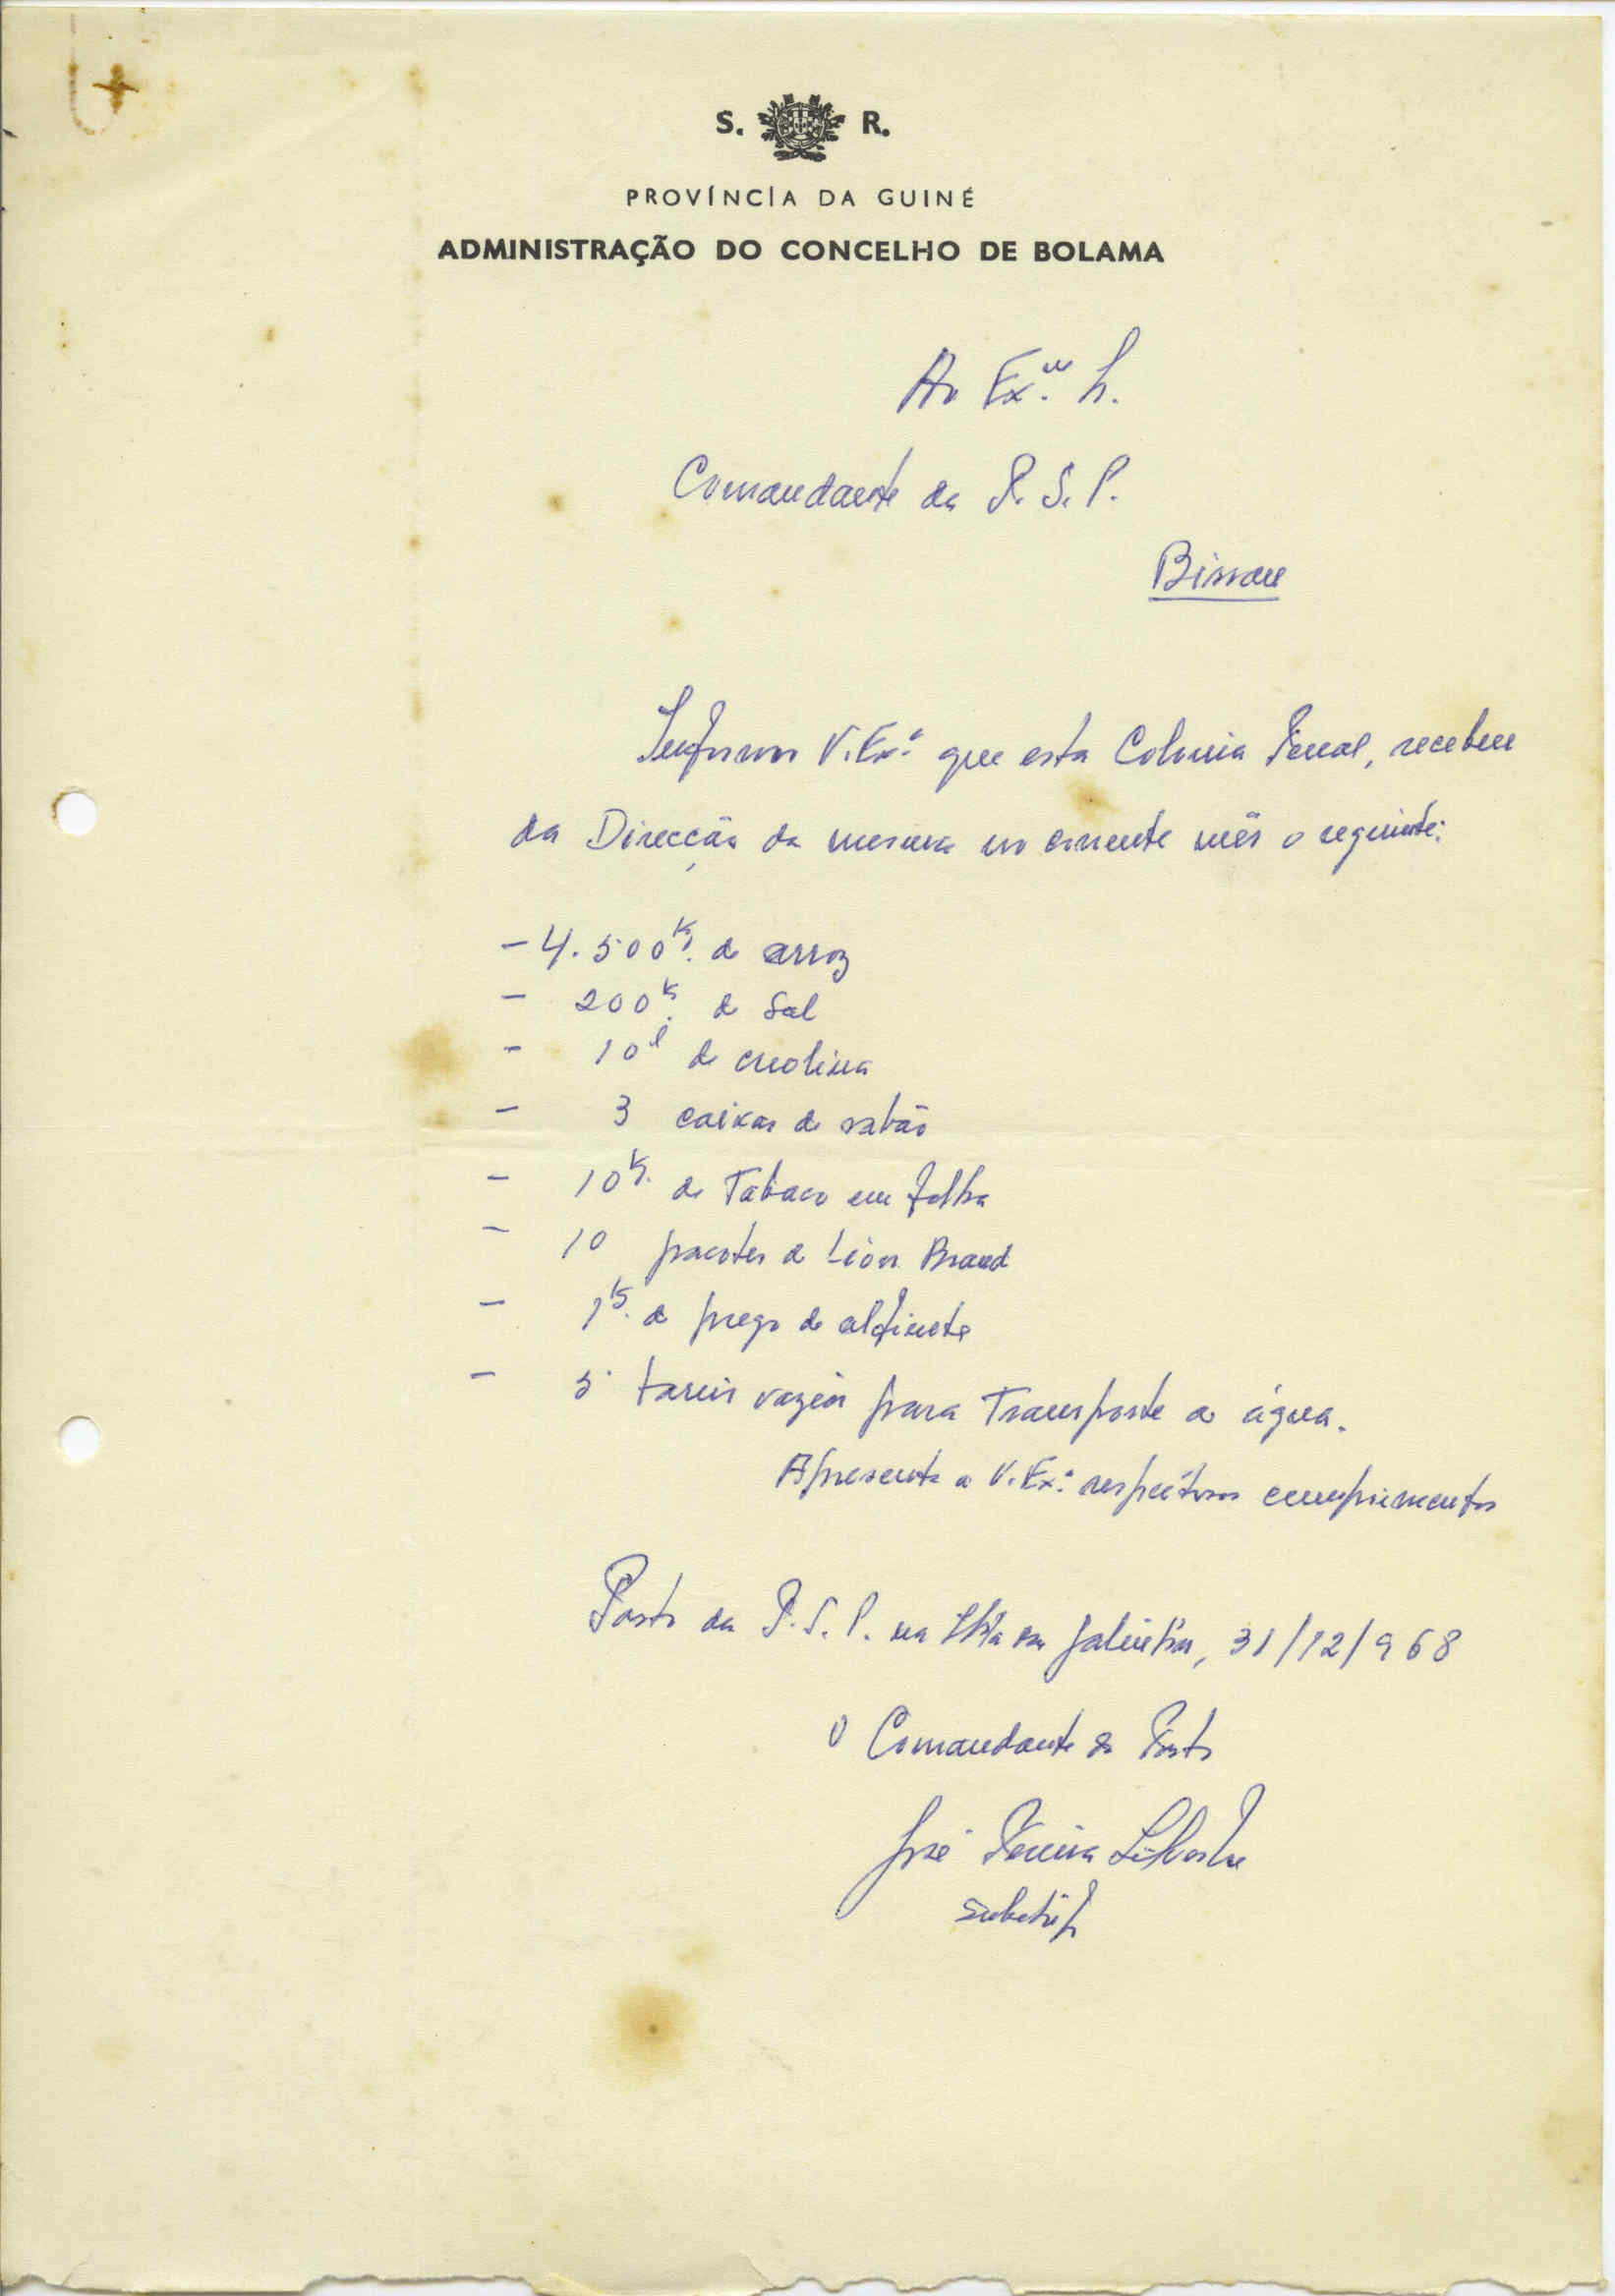 S. R.
PROVÍNCIA DA GUINÉ
ADMINISTRAÇÃO DO CONCELHO DE BOLAMA
Ao Ex.mo Sr.
Comandante da P. S. P.
Bissau
Informo V. Ex.ª que esta Colonia Penal, recebeu
da Direcção da mesma no corrente mês o seguinte:
- 4.500 K. de arroz
- 200 K. de Sal
- 10 l de creolina
- 3 caixas de sabão
- 10 K. de Tabaco em folha
- 10 pacotes de Lion Brand
- 1 K. de prego de alfinete
- 5 tamis vazios para Transporte de água.
Apresento a V. Ex.ª respeitosos cumprimentos
Posto da P. S. P. na Ilha das Galinhas, 31/12/968
O Comandante do Posto
José Pereira Silvestre